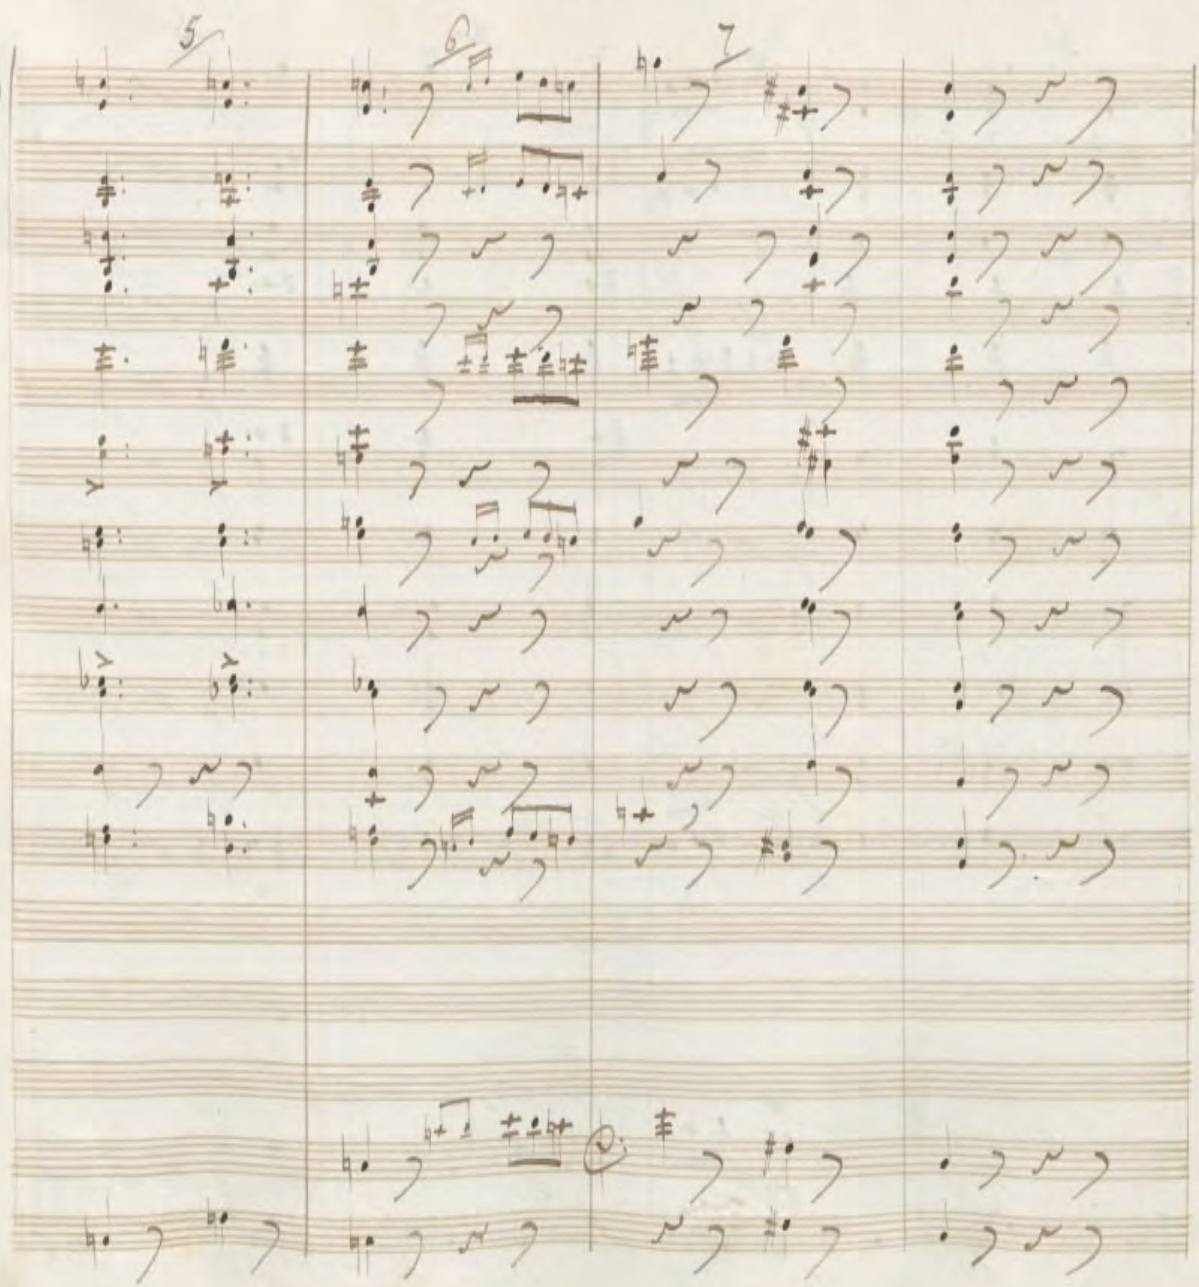 5 6 7